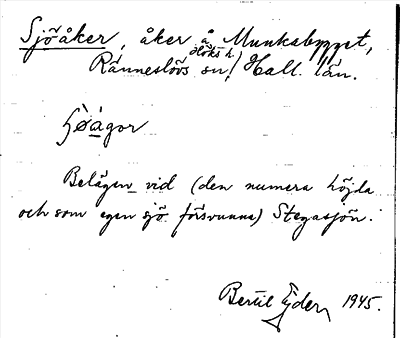 Sjöåker, åker å Munkabygget,
Höks h.,
Ränneslövs sn, Hall. län.
Belägen vid (den numera höjda
och som egen sjö försvunna) Stegasjön.
Bertil Ejder, 1945.